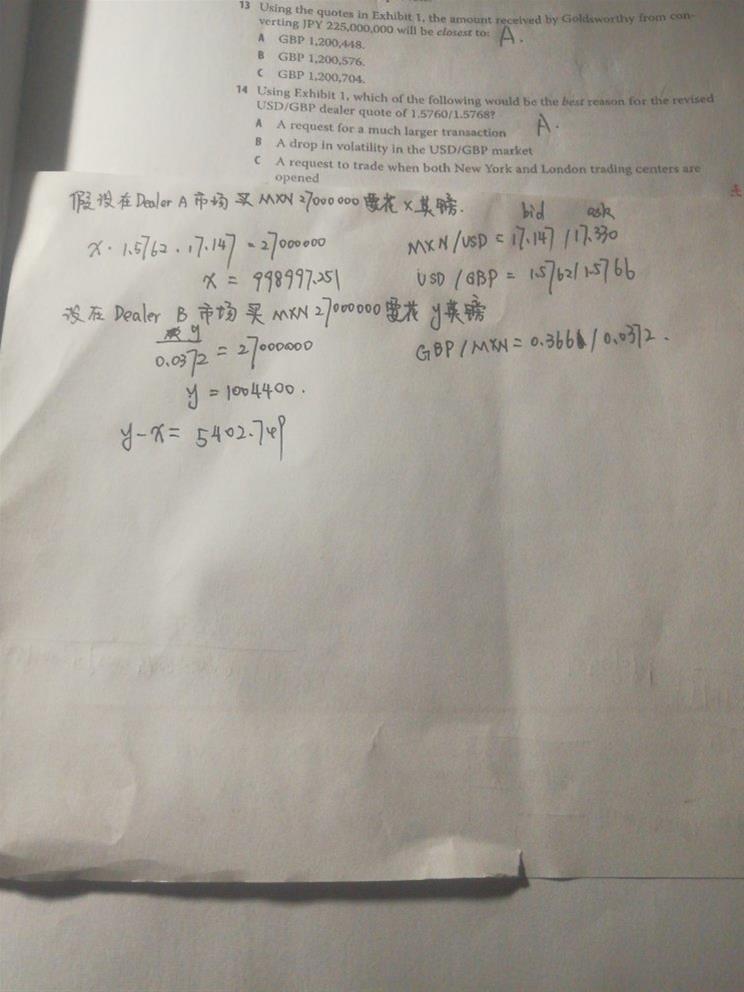 13 Using the quotes in Exhibit 1, the amount received by Goldsworthy from con-
verting JPY 225,000,000 will be closest to: A.
A GBP 1,200,448.
B GBP 1,200,576.
C GBP 1,200,704.
14 Using Exhibit 1, which of the following would be the best reason for the revised
USD/GBP dealer quote of 1.5760/1.5768? A.
A A request for a much larger transaction
B A drop in volatility in the USD/GBP market
C A request to trade when both New York and London trading centers are
opened
假设在 Dealer A 市场买 MXN 27000000 要花 x 英镑.
bid ask
x · 1.5762 · 17.147 = 27000000
MXN/USD = 17.147 / 17.330
x = 998997.251
USD/GBP = 1.5762/1.5766
设在 Dealer B 市场买 MXN 27000000 要花 y 英镑
y
0.0372 = 27000000
GBP/MXN = 0.366 / 0.0372.
y = 1004400.
y-x = 5402.749